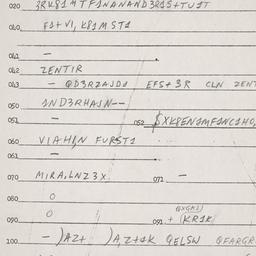 020 3RK81MTF1NANAND3R1S+TUST
040 F1+VI, K81MST1
041 —
042 ZENTIR
043 - QD3RZAJD1 EFS+3R CLN ZENT
050 1ND3RHAJN--
051 — 052 $XK8EN1MF1NC1HO,
060 VIAHIN FURST1
061 —
070 MIRA,LNZ3X 071 —
080 O
090 O 091 + (KR1K
100 - )AZ+ )A,Z+1K QELSW QFARGR